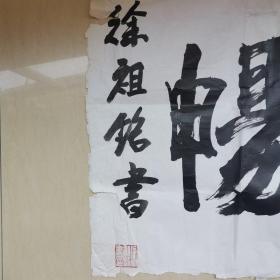 暢
徐祖铭書